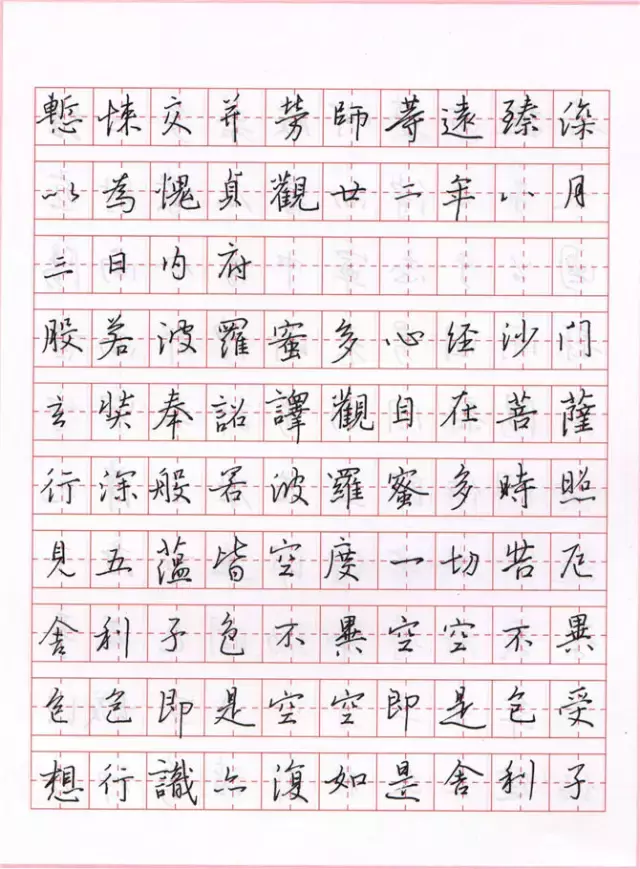 慙悚交并勞師等遠臻深
以為愧貞觀廿二年八月
三日內府
般若波羅蜜多心経沙门
玄奘奉詔譯觀自在菩薩
行深般若波羅蜜多時照
見五蘊皆空度一切苦厄
舍利子色不異空空不異
色色即是空空即是色受
想行識亦復如是舍利子